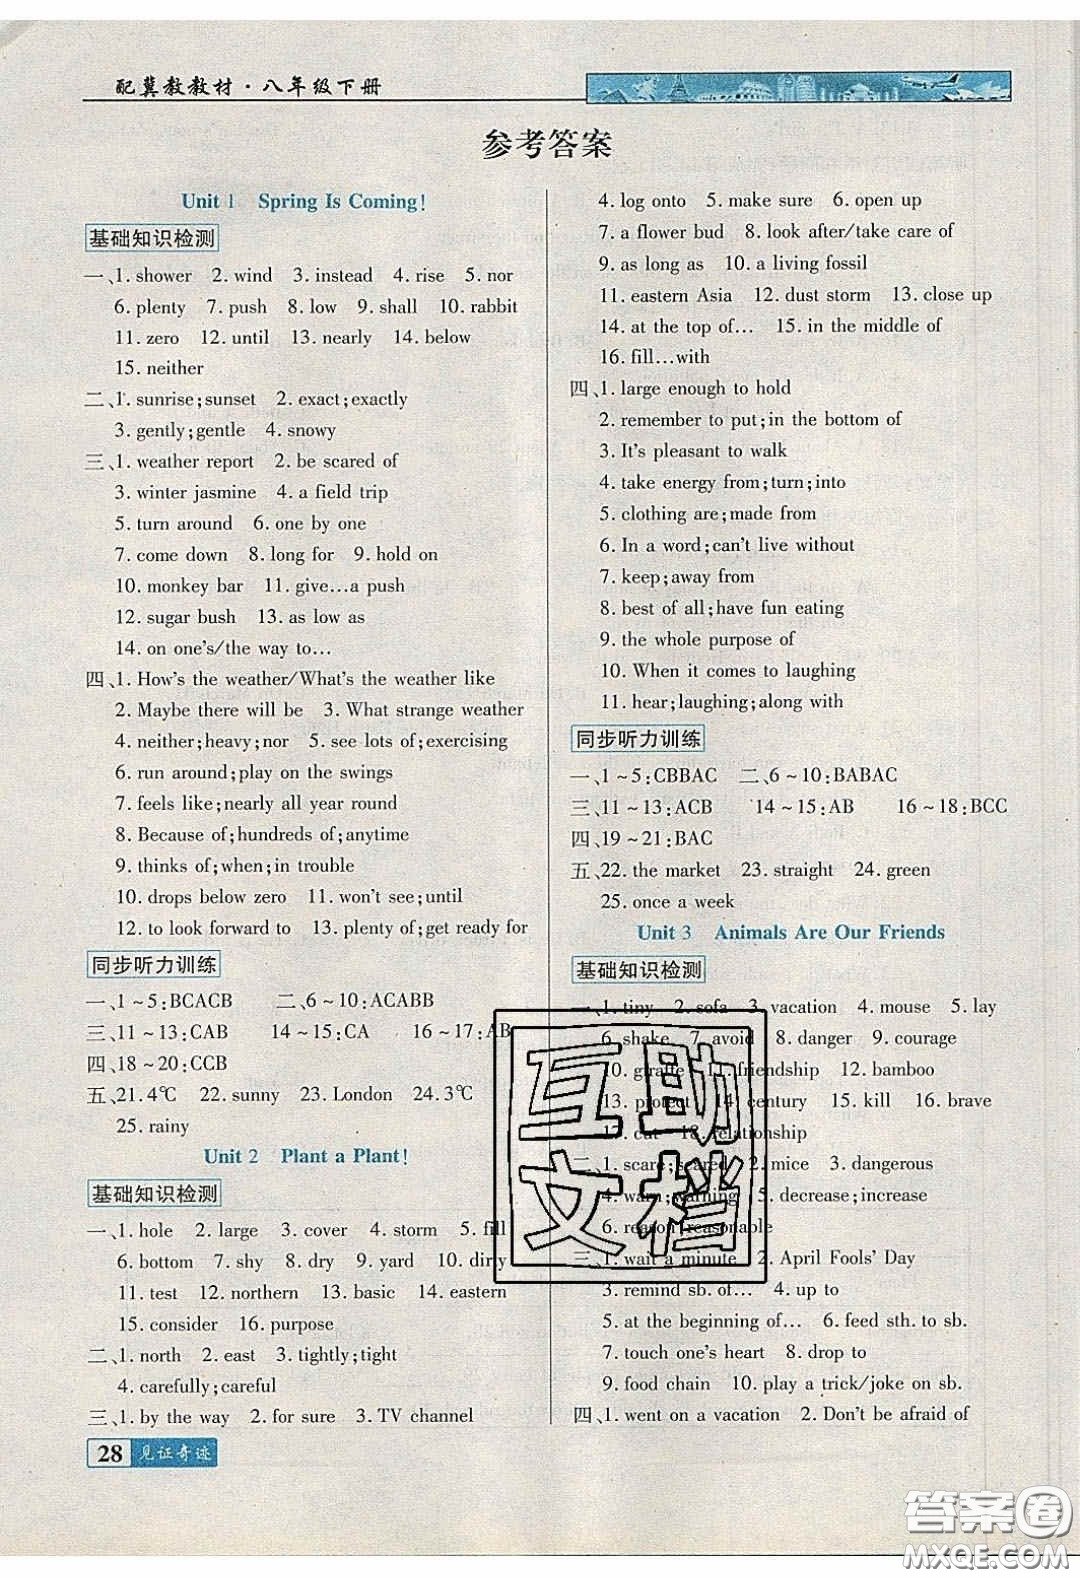 配冀教教材·八年级下册
参考答案
Unit 1 Spring Is Coming!
基础知识检测
一、1. shower 2. wind 3. instead 4. rise 5. nor
6. plenty 7. push 8. low 9. shall 10. rabbit
11. zero 12. until 13. nearly 14. below
15. neither
二、1. sunrise;sunset 2. exact;exactly
3. gently;gentle 4. snowy
三、1. weather report 2. be scared of
3. winter jasmine 4. a field trip
5. turn around 6. one by one
7. come down 8. long for 9. hold on
10. monkey bar 11. give…a push
12. sugar bush 13. as low as
14. on one's/the way to…
四、1. How's the weather/What's the weather like
2. Maybe there will be 3. What strange weather
4. neither;heavy;nor 5. see lots of;exercising
6. run around;play on the swings
7. feels like;nearly all year round
8. Because of;hundreds of;anytime
9. thinks of;when;in trouble
10. drops below zero 11. won't see;until
12. to look forward to 13. plenty of;get ready for
同步听力训练
一、1～5:BCACB 二、6～10:ACABB
三、11～13:CAB 14～15:CA 16～17:AB
四、18～20:CCB
五、21.4℃ 22. sunny 23. London 24.3℃
25. rainy
Unit 2 Plant a Plant!
基础知识检测
一、1. hole 2. large 3. cover 4. storm 5. fill
6. bottom 7. shy 8. dry 9. yard 10. dirty
11. test 12. northern 13. basic 14. eastern
15. consider 16. purpose
二、1. north 2. east 3. tightly;tight
4. carefully;careful
三、1. by the way 2. for sure 3. TV channel
28 见证奇迹
4. log onto 5. make sure 6. open up
7. a flower bud 8. look after/take care of
9. as long as 10. a living fossil
11. eastern Asia 12. dust storm 13. close up
14. at the top of… 15. in the middle of
16. fill…with
四、1. large enough to hold
2. remember to put;in the bottom of
3. It's pleasant to walk
4. take energy from;turn;into
5. clothing are;made from
6. In a word;can't live without
7. keep;away from
8. best of all;have fun eating
9. the whole purpose of
10. When it comes to laughing
11. hear;laughing;along with
同步听力训练
一、1～5:CBBAC 二、6～10:BABAC
三、11～13:ACB 14～15:AB 16～18:BCC
四、19～21:BAC
五、22. the market 23. straight 24. green
25. once a week
Unit 3 Animals Are Our Friends
基础知识检测
一、1. tiny 2. sofa 3. vacation 4. mouse 5. lay
6. shake 7. avoid 8. danger 9. courage
10. giraffe 11. friendship 12. bamboo
13. protect 14. century 15. kill 16. brave
17. cut 18. relationship
二、1. scare;scared 2. mice 3. dangerous
4. warn;warning 5. decrease;increase
6. reason;reasonable
三、1. wait a minute 2. April Fools' Day
3. remind sb. of… 4. up to
5. at the beginning of… 6. feed sth. to sb.
7. touch one's heart 8. drop to
9. food chain 10. play a trick/joke on sb.
四、1. went on a vacation 2. Don't be afraid of
互助
文档
答案圈
MXQE.COM